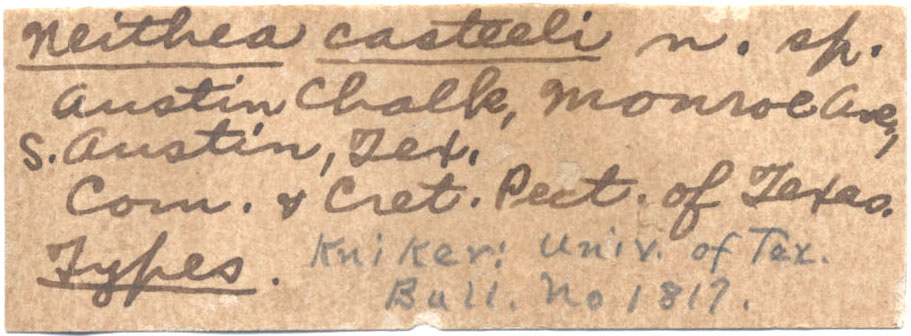 Neithea casteeli n. sp.
Austin Chalk, Monroe Ave,
S. Austin, Tex.
Com. & Cret. Pect. of Texas.
Types. Kniker: Univ. of Tex.
Bull. No 1817.